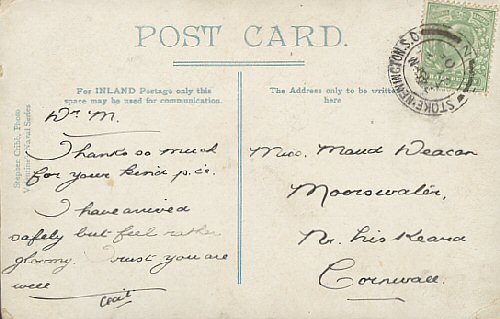 POST CARD.
For INLAND Postage only this
space may be used for communication.
The Address only to be written
here
STOKE NEWINGTON S.O.
Stephen Cribb, Photo
Dr. M.
Thanks so much
for your kind p.c.
I have arrived
safely but feel rather
gloomy. Trust you are
well
Cecil
Miss. Maud Deacon
Moorswater,
Nr. Liskeard
Cornwall.